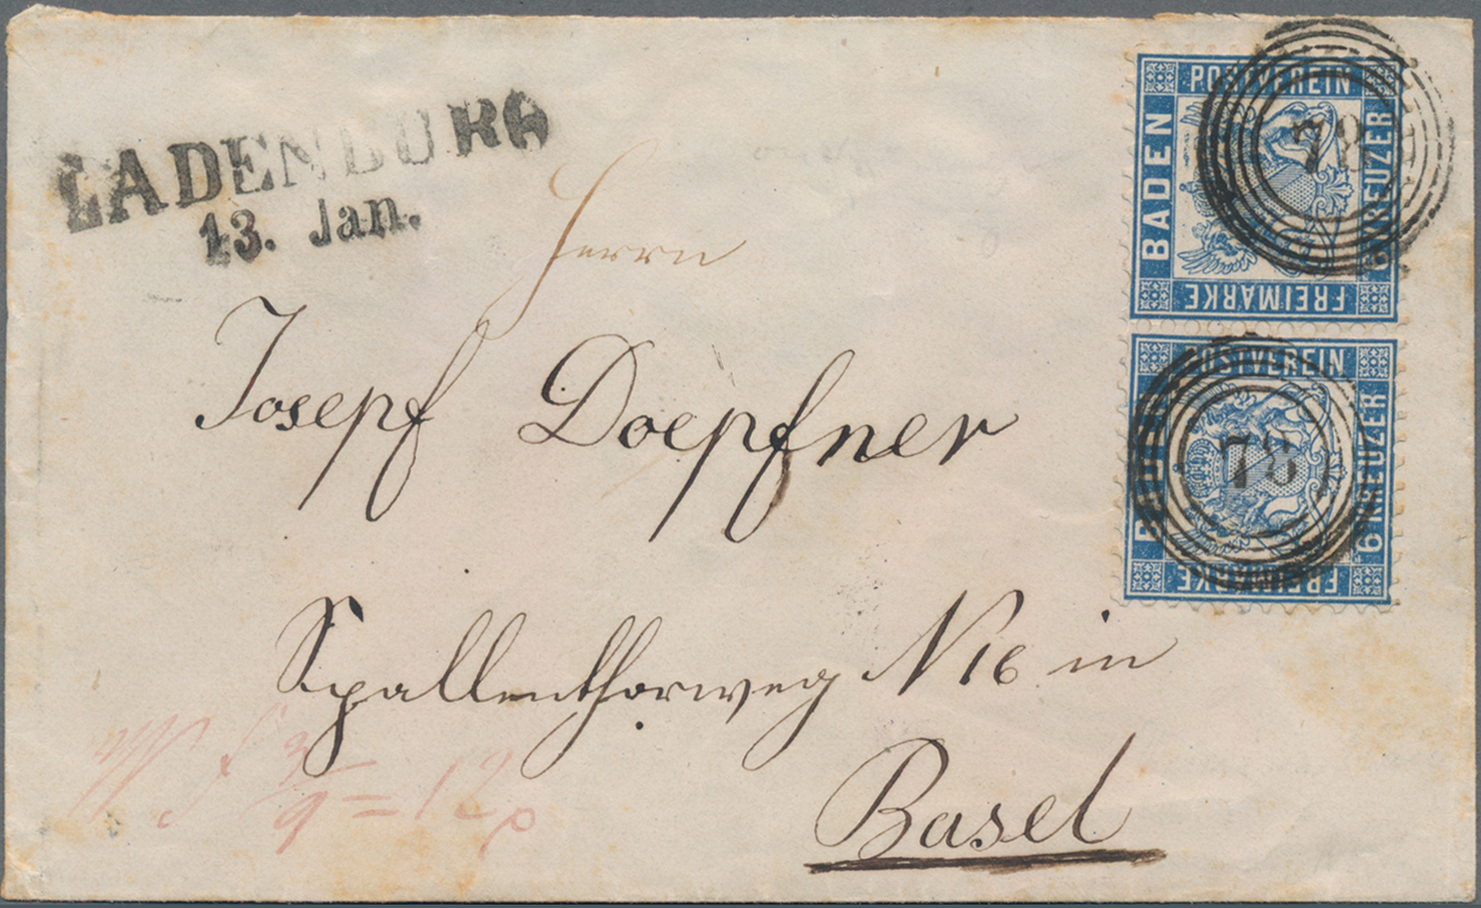 LADENBURG
13. Jan.
POSTVEREIN
BADEN
6 KREUZER
FREIMARKE
78
POSTVEREIN
BADEN
6 KREUZER
FREIMARKE
78
Herrn
Josepf Doepfner
Spallenthorweg N 16 in
Basel
3/9 = 12